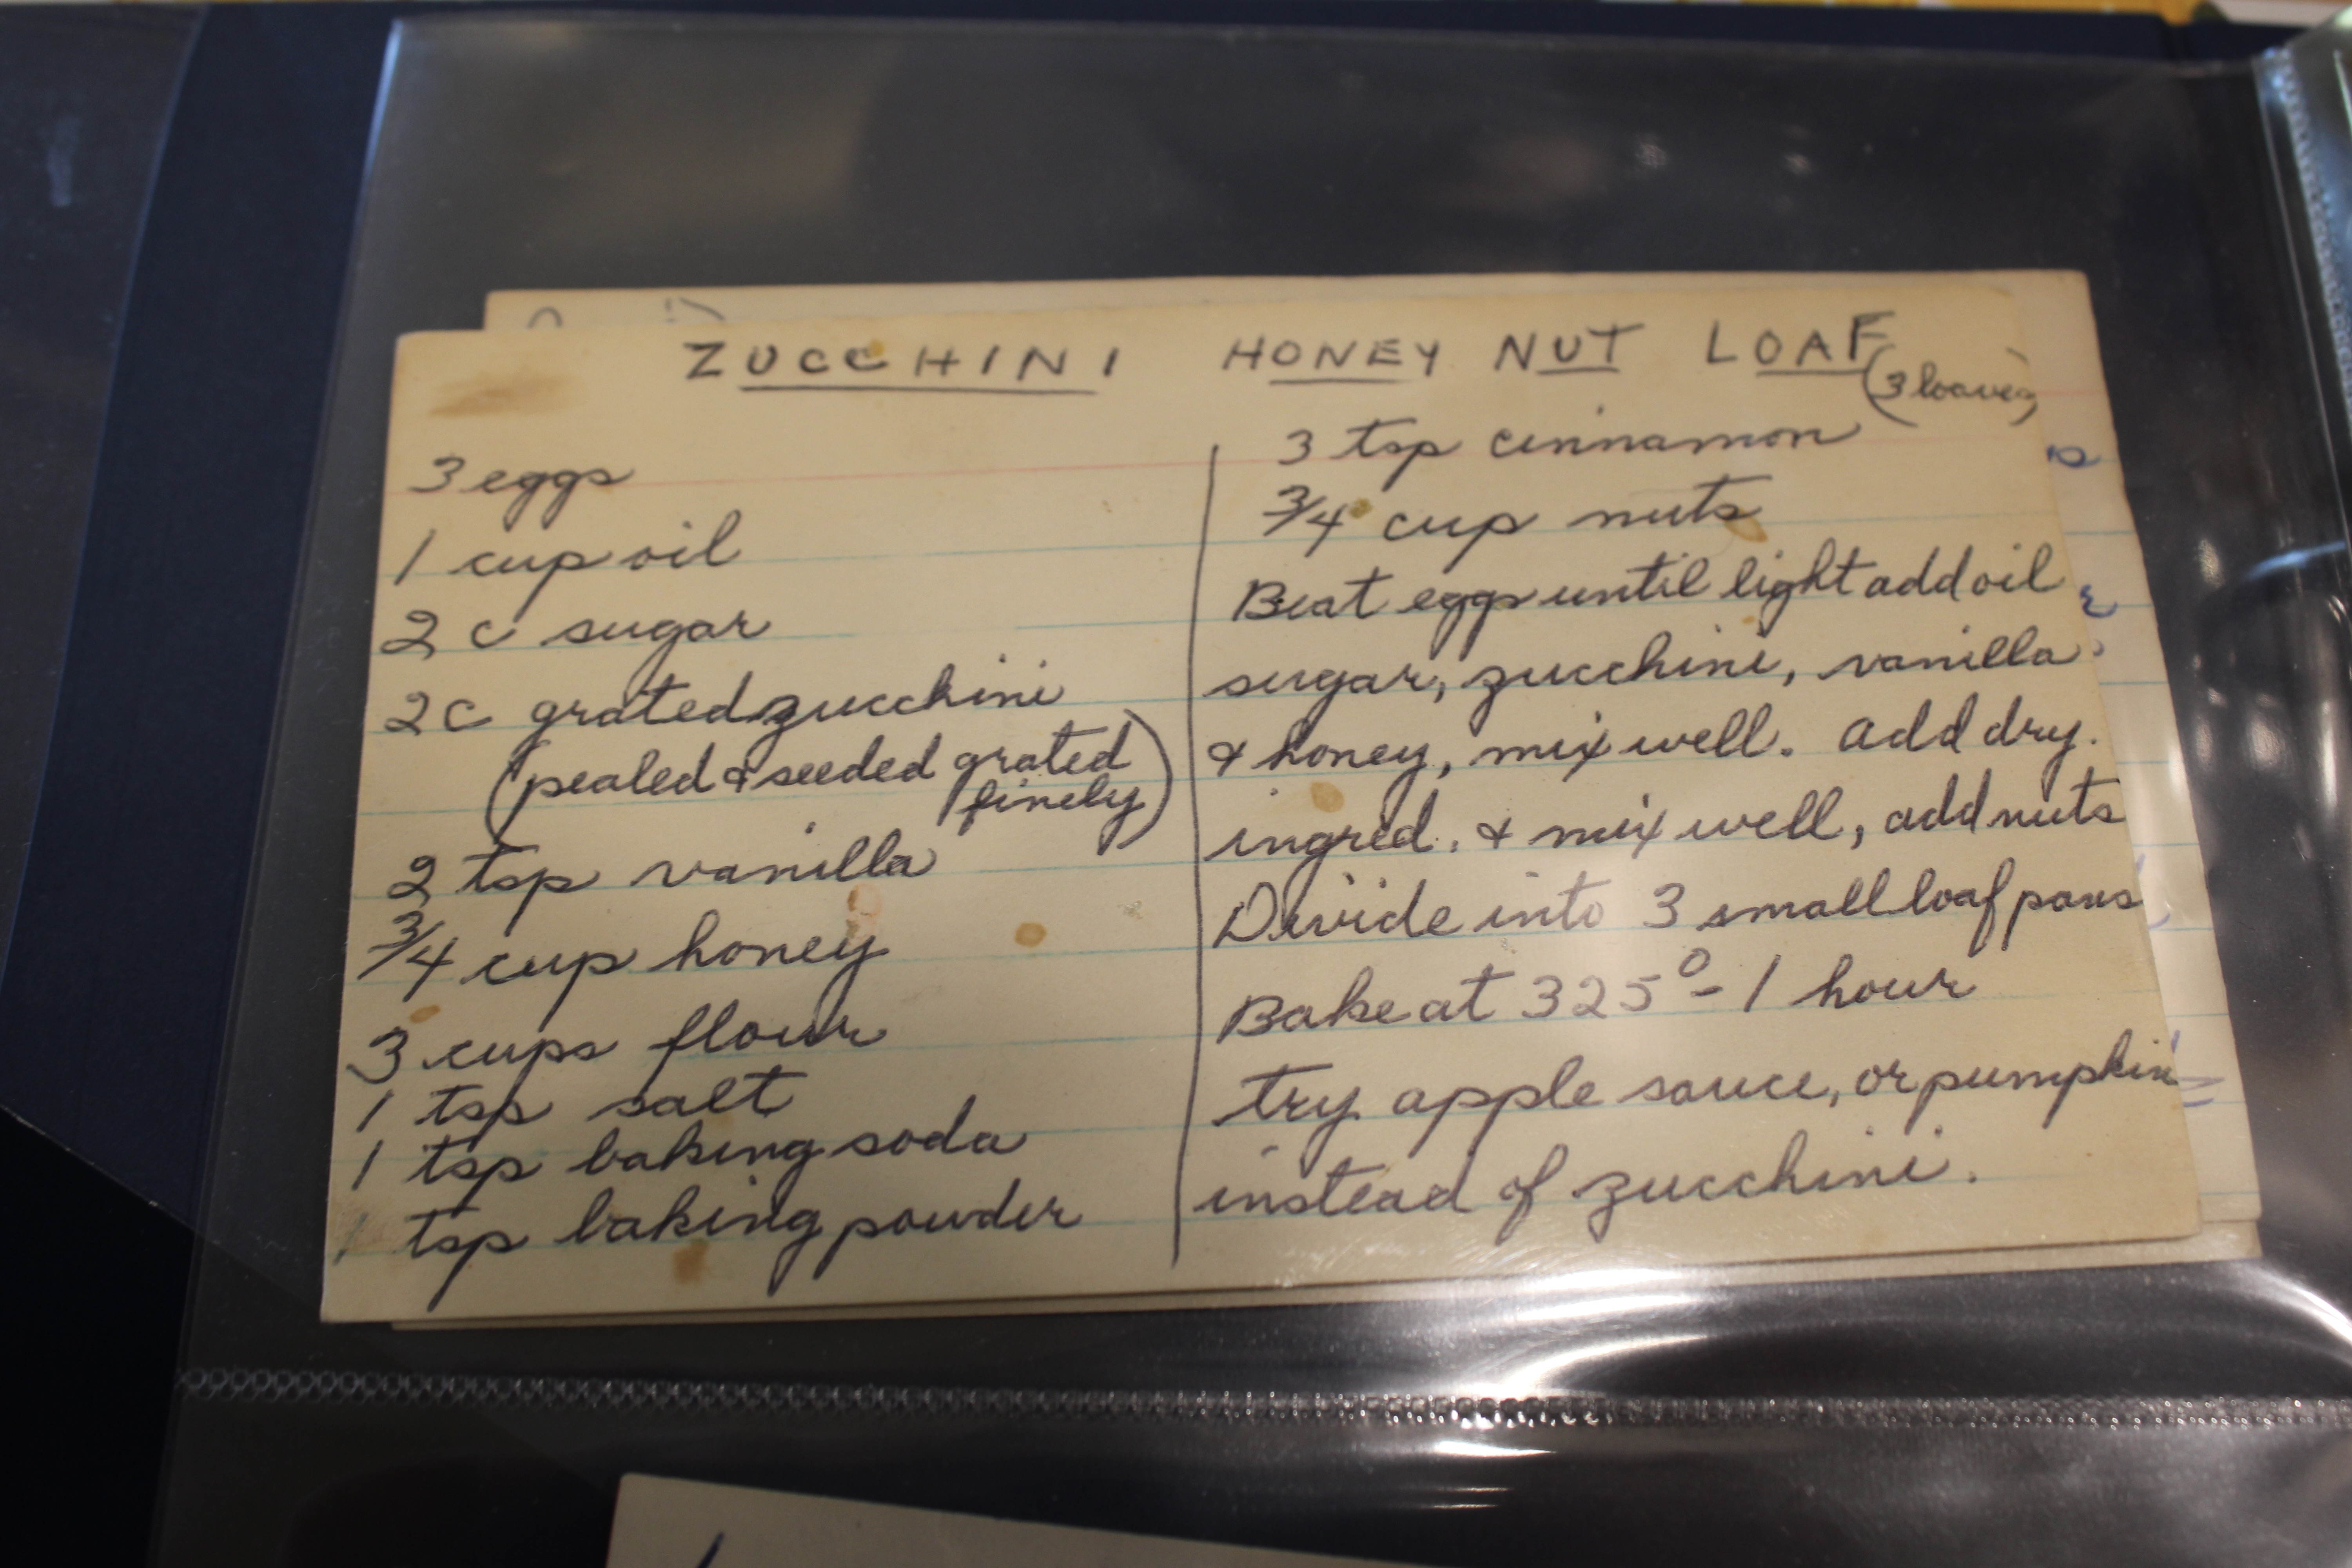 ZUCCHINI HONEY NUT LOAF
(3 loaves)
3 eggs
1 cup oil
2 c sugar
2 c grated zucchini
(pealed & seeded grated
finely)
2 tsp vanilla
3/4 cup honey
3 cups flour
1 tsp salt
1 tsp baking soda
1 tsp baking powder
3 tsp cinnamon
3/4 cup nuts
Beat eggs until light add oil
sugar, zucchini, vanilla
& honey, mix well. Add dry.
ingred. & mix well, add nuts
Divide into 3 small loaf pans
Bake at 325° - 1 hour
try apple sauce, or pumpkin
instead of zucchini.